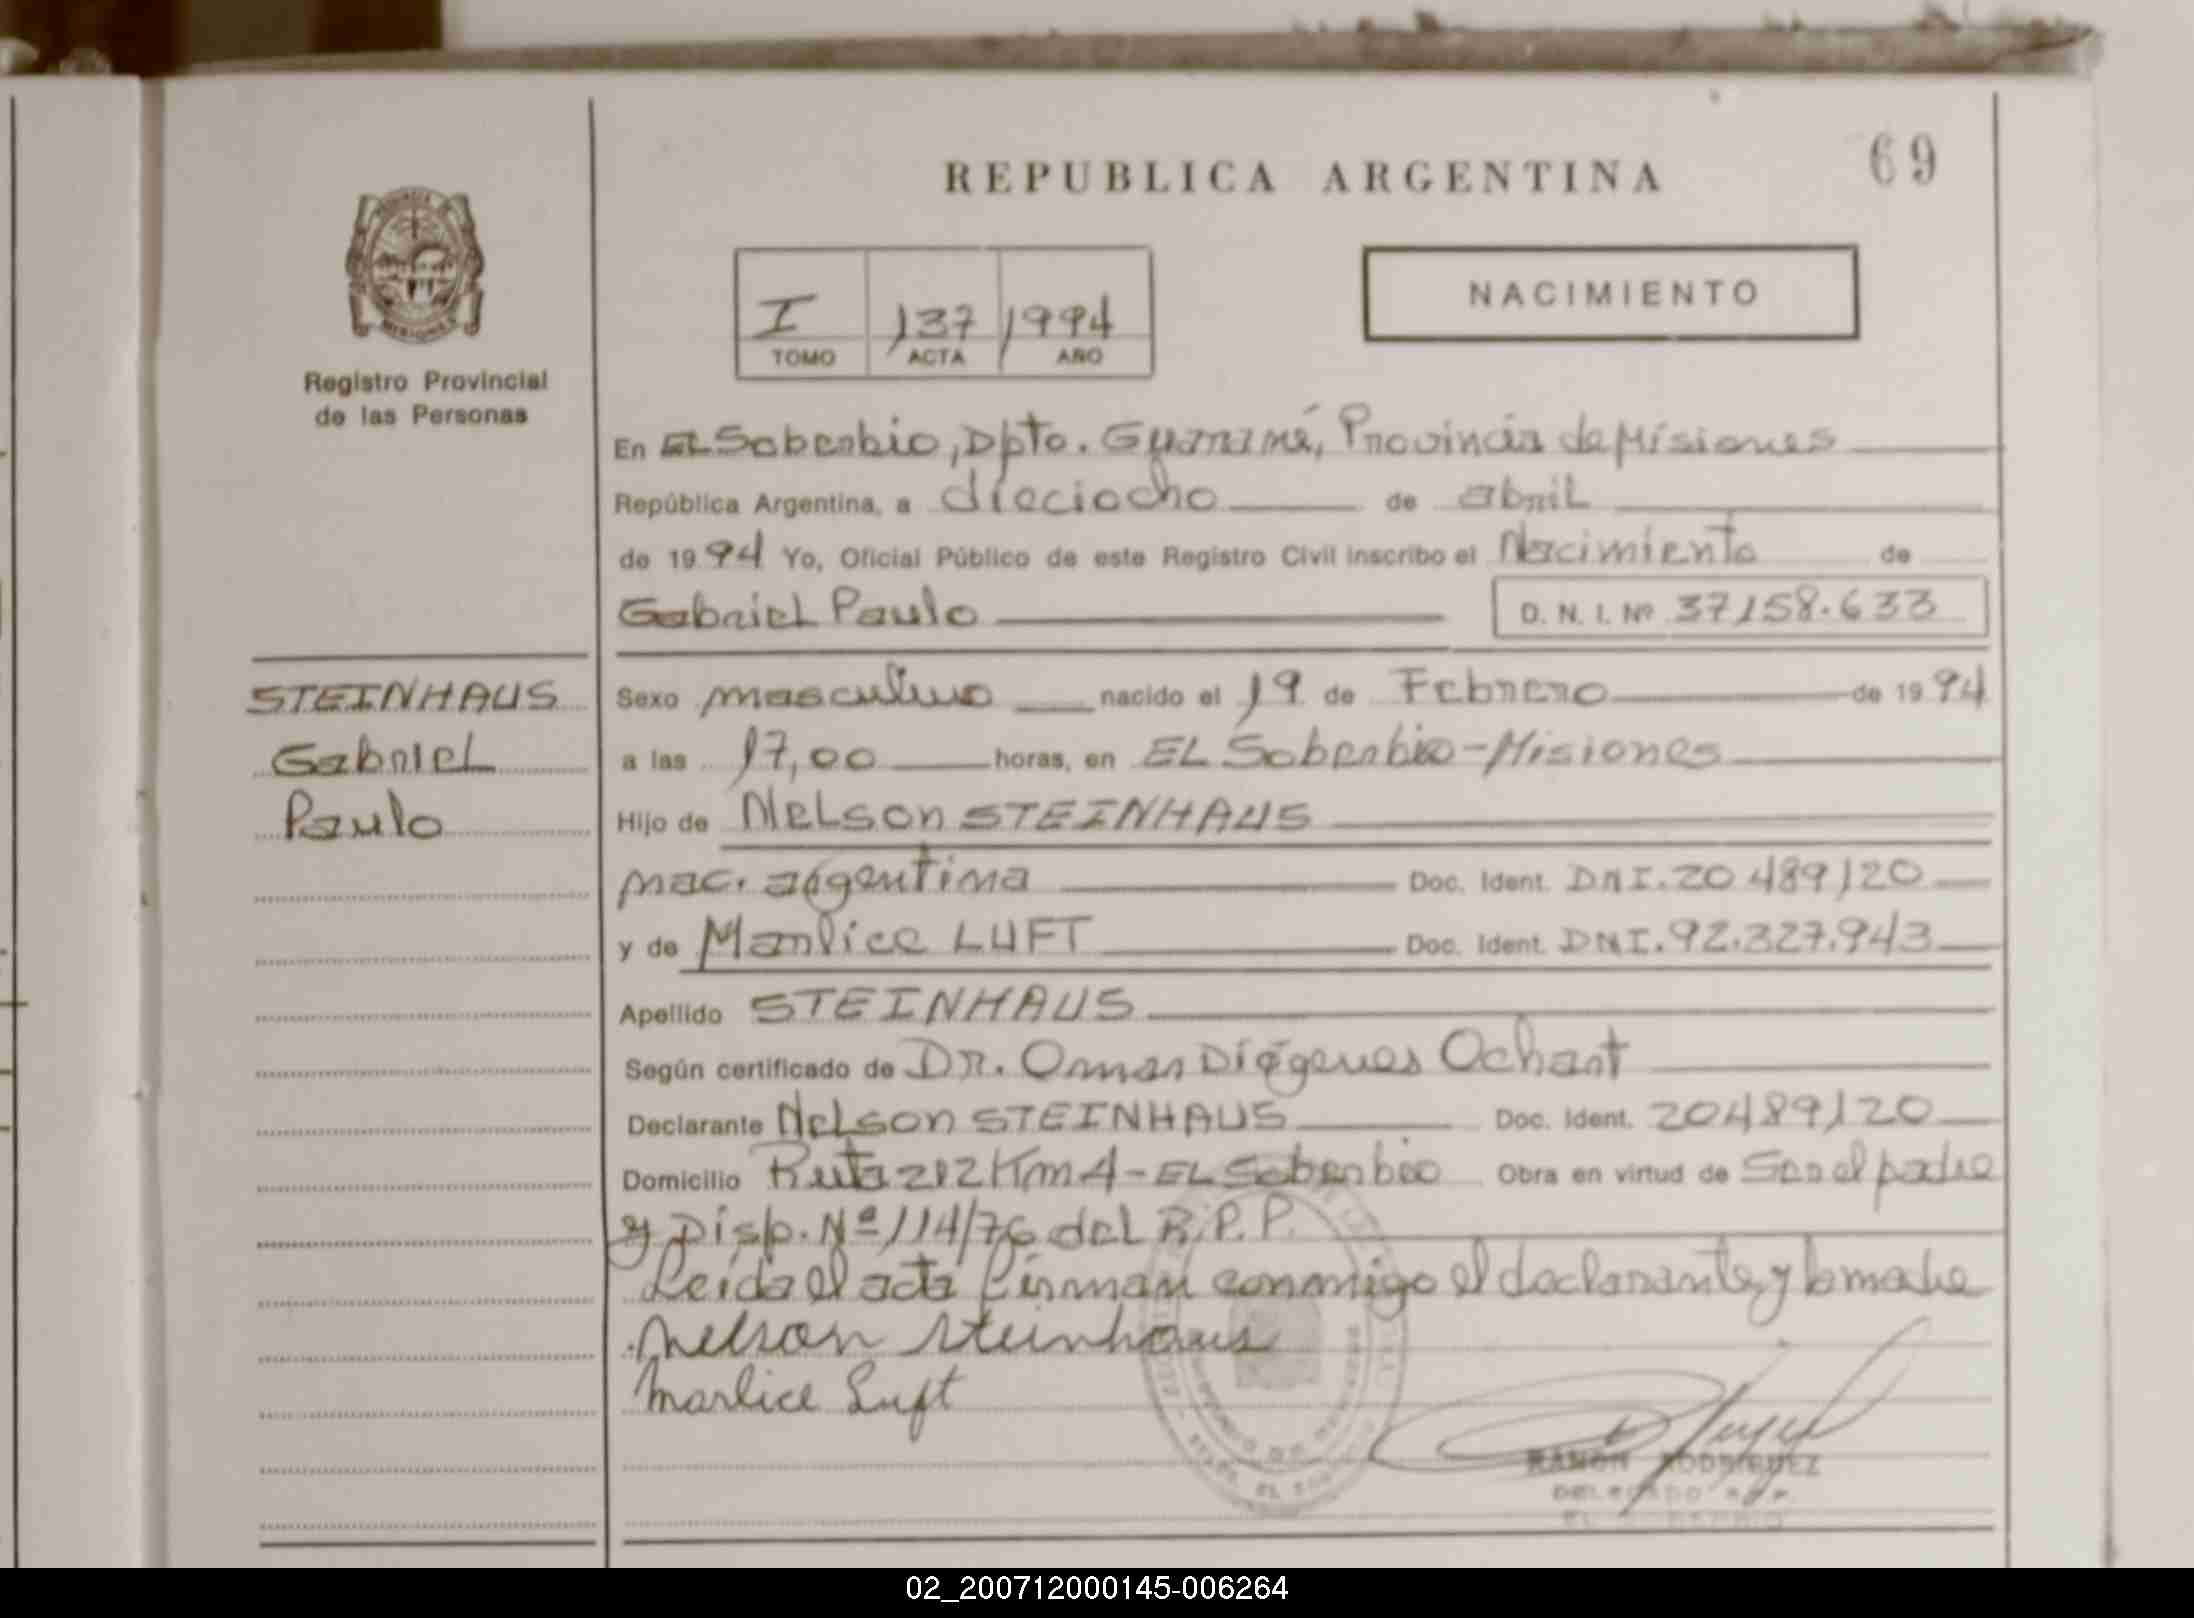 REPUBLICA ARGENTINA
69
NACIMIENTO
I 137 1994
TOMO ACTA AÑO
Registro Provincial
de las Personas
En EL Soberbio, Dpto. Guaraní, Provincia de Misiones
República Argentina, a dieciocho de abril
de 1994 Yo, Oficial Público de este Registro Civil inscribo el Nacimiento de
Gabriel Paulo D. N. I. Nº 37158.633
STEINHAUS
Gabriel
Paulo
Sexo masculino nacido el 19 de Febrero de 1994
a las 17,00 horas, en EL Soberbio-Misiones
Hijo de Nelson STEINHAUS
nac. argentina Doc. Ident. DNI.20489120
y de Marlice LUFT Doc. Ident. DNI.92.327.943
Apellido STEINHAUS
Según certificado de Dr. Omar Diógenes Ochart
Declarante Nelson STEINHAUS Doc. Ident. 20489120
Domicilio Ruta 212 Km 4-EL Soberbio Obra en virtud de Ser el padre
y Disp. Nº 114/76 del R.P.P.
Leída el acta firman conmigo el declarante y la madre
Nelson Steinhaus
Marlice Luft
RAMON RODRIGUEZ
DELEGADO R.P.P.
02_200712000145-006264